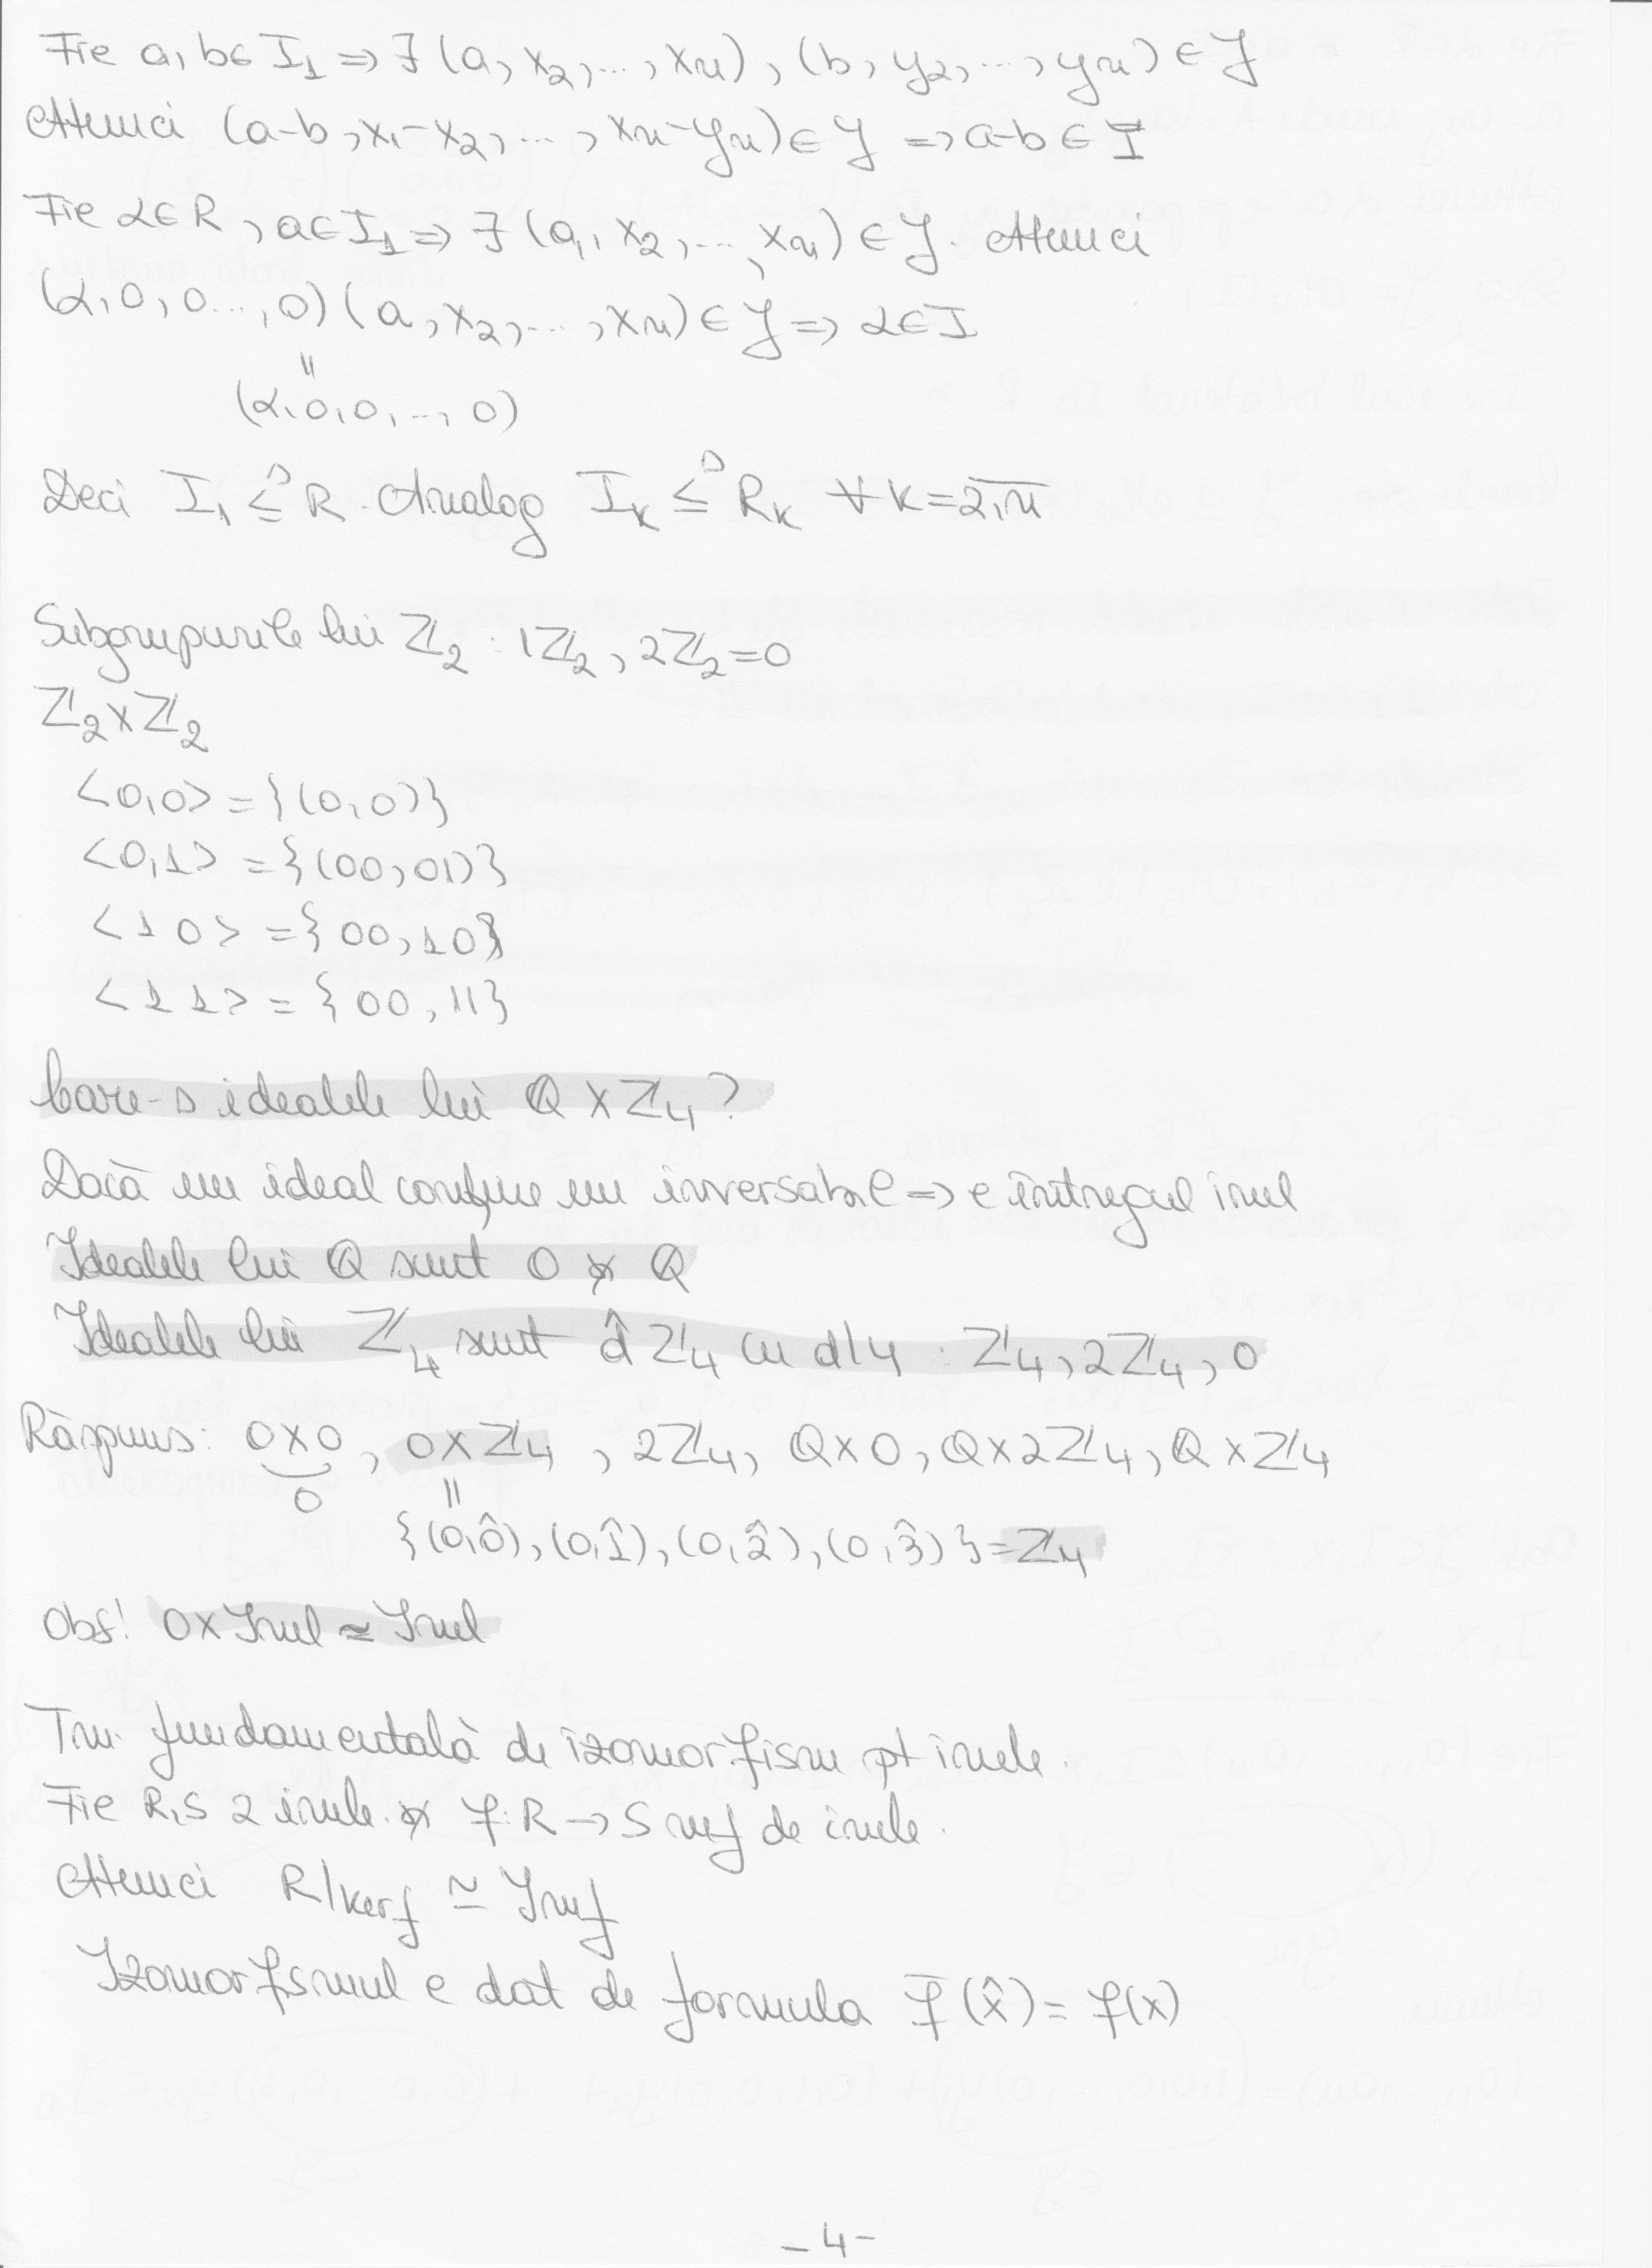 Fie a, b ∈ I₁ ⇒ ∃ (a, x₂, ..., xₙ), (b, y₂, ..., yₙ) ∈ J
Atunci (a-b, x₁-x₂, ..., xₙ-yₙ) ∈ J ⇒ a-b ∈ I
Fie α ∈ R, a ∈ I₁ ⇒ ∃ (a, x₂, ..., xₙ) ∈ J. Atunci
(α, 0, 0..., 0) (a, x₂, ..., xₙ) ∈ J ⇒ α ∈ I
=
(α, 0, 0, ..., 0)
Deci I₁ ≤ᴰ R. Analog I_k ≤ᴰ R_k ∀ k = 2,n
Subgrupurile lui Z₂ : 1Z₂, 2Z₂ = 0
Z₂ x Z₂
<0,0> = {(0,0)}
<0,1> = {(00, 01)}
<1 0> = {00, 10}
<1 1> = {00, 11}
Care-s idealele lui Q x Z₄ ?
Dacă un ideal conține un inversabil ⇒ e întregul inel
Idealele lui Q sunt 0 și Q
Idealele lui Z₄ sunt d̂ Z₄ cu d|4 : Z₄, 2Z₄, 0
Răspuns: 0x0, 0 x Z₄, 2Z₄, Q x 0, Q x 2Z₄, Q x Z₄
0 =
{(0,0̂), (0,1̂), (0,2̂), (0,3̂)} = Z₄
Obs! 0 x Inel ≃ Inel
Tm. fundamentală de izomorfism pt inele.
Fie R, S 2 inele și f: R → S mf de inele.
Atunci R/Kerf ≃ Imf
Izomorfismul e dat de formula f̄(x̂) = f(x)
-4-